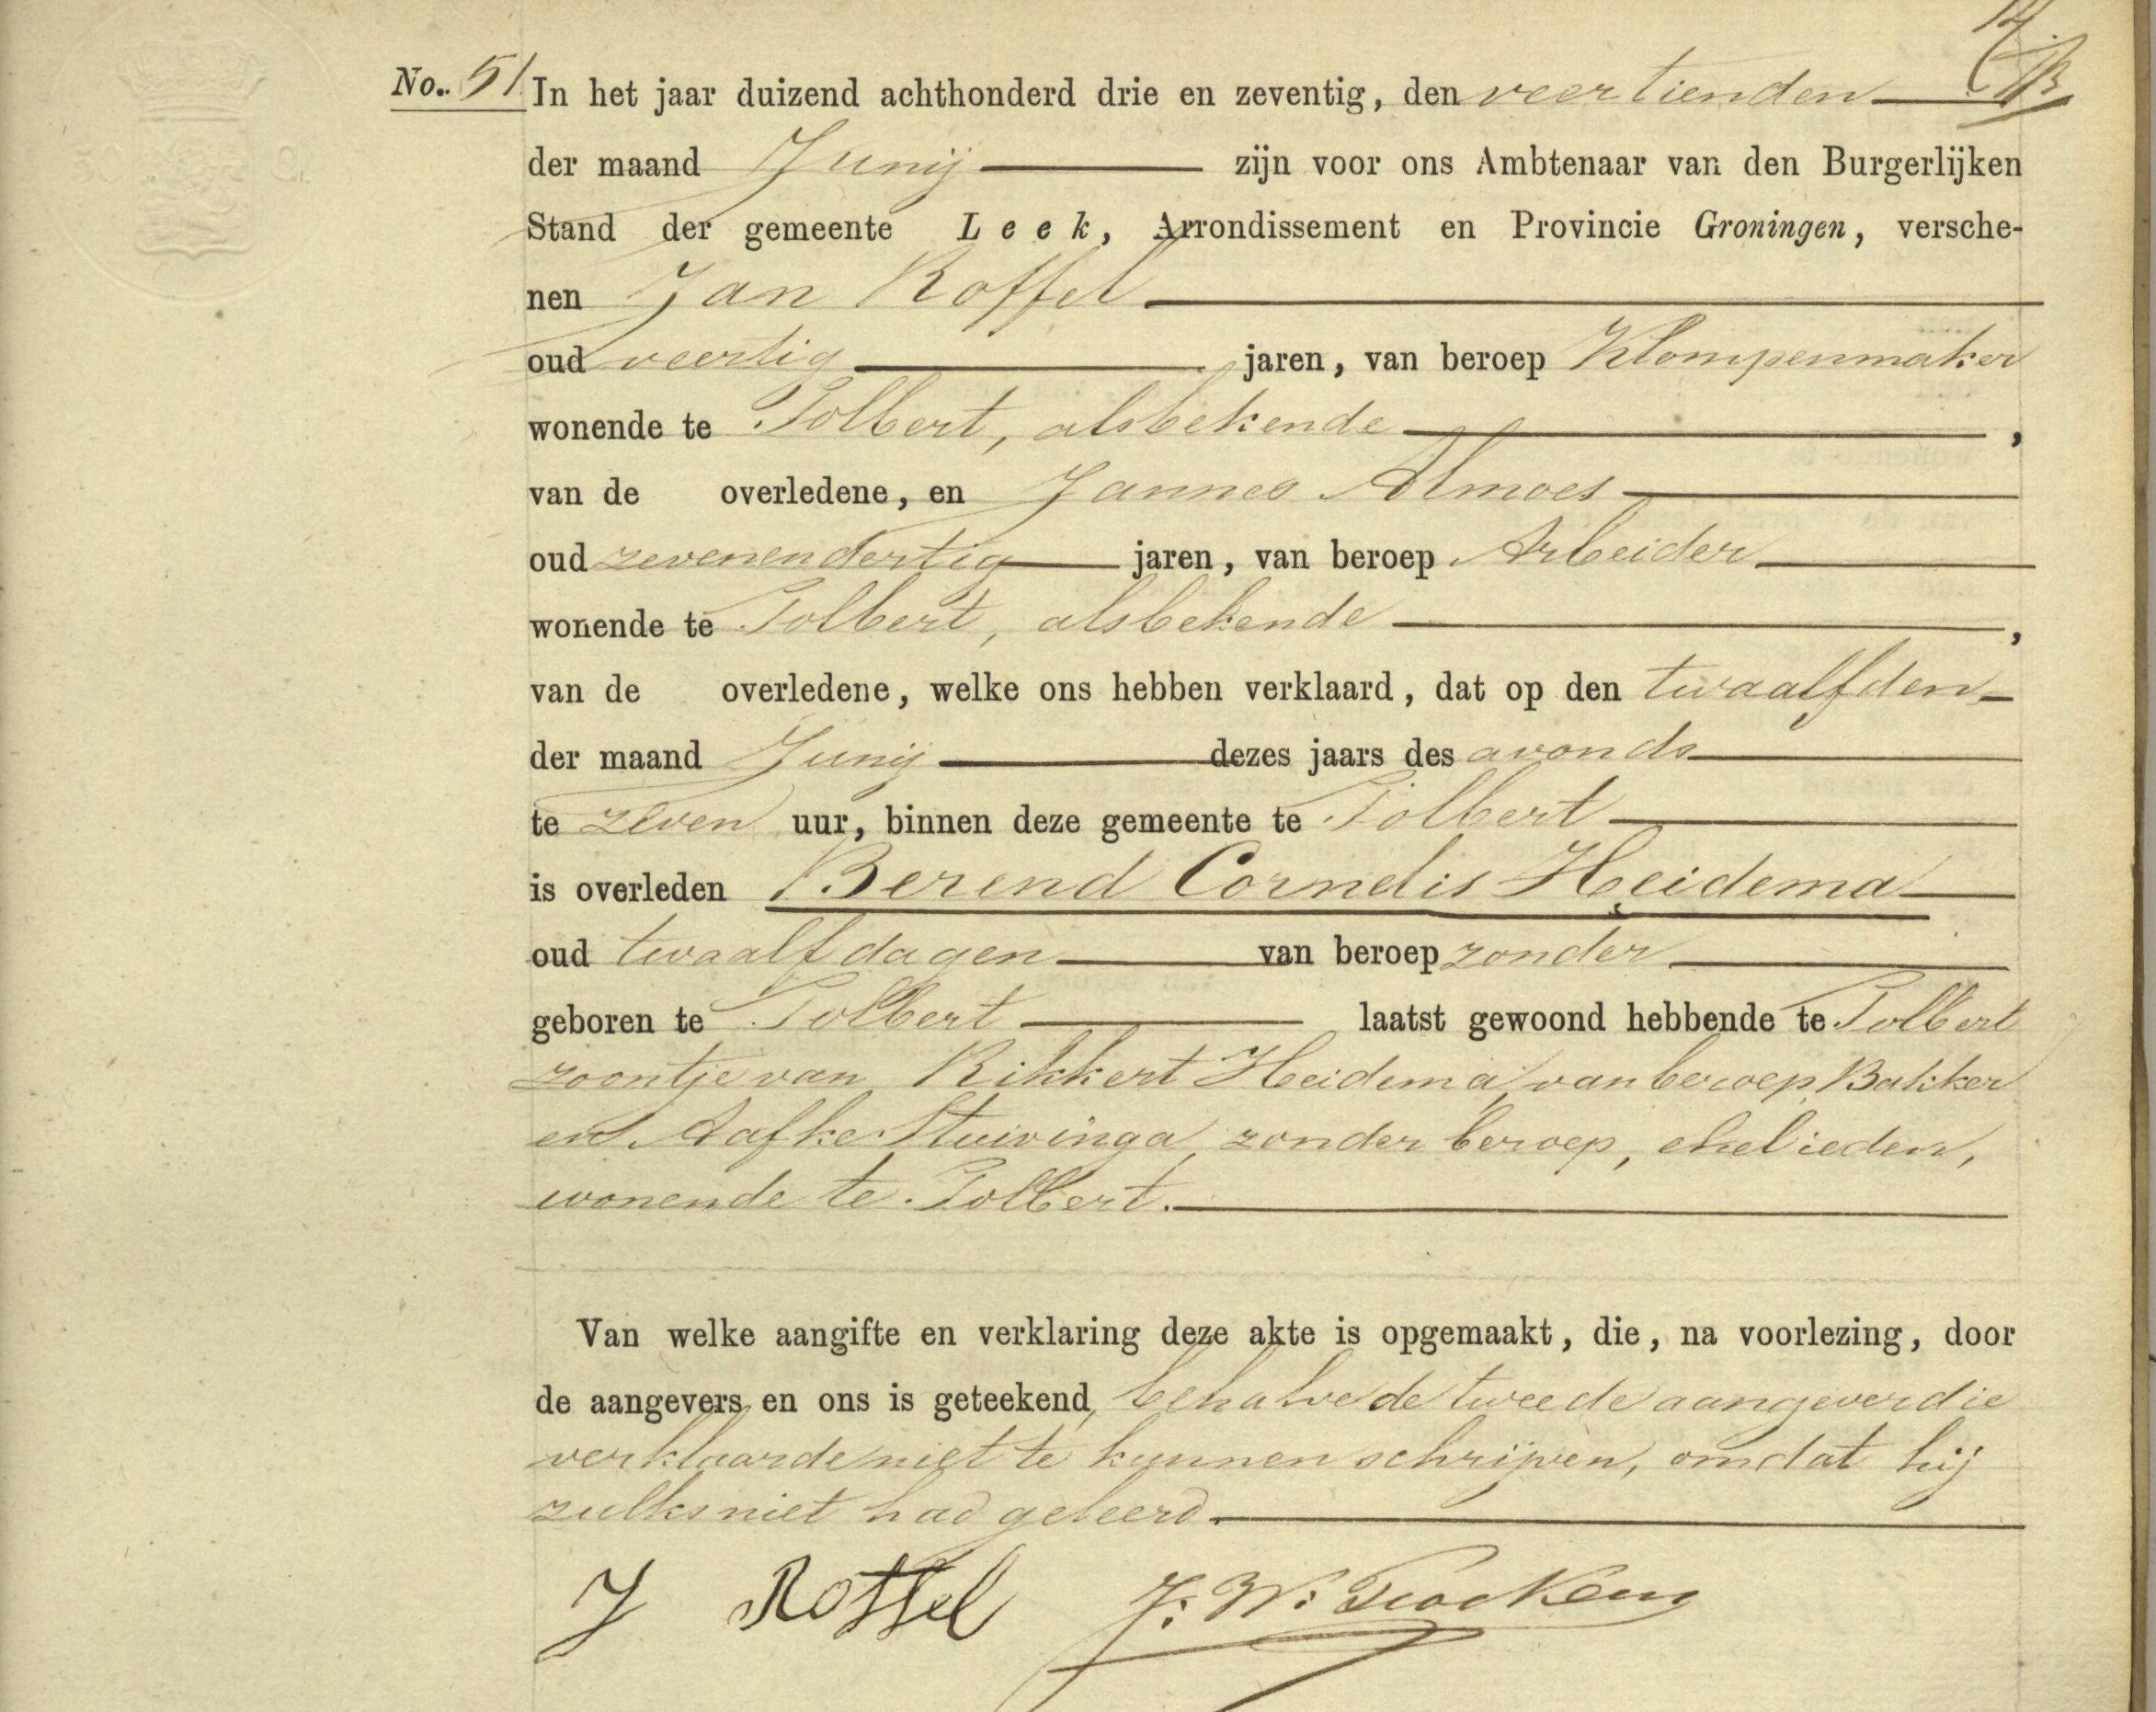 No. 51 In het jaar duizend achthonderd drie en zeventig, den veertienden
der maand Junij zijn voor ons Ambtenaar van den Burgerlijken
Stand der gemeente Leek, Arrondissement en Provincie Groningen, versche-
nen Jan Roffel
oud veertig jaren, van beroep Klompenmaker
wonende te Tolbert, als bekende,
van de overledene, en Jannes Almoes
oud zevenendertig jaren, van beroep Arbeider
wonende te Tolbert, als bekende,
van de overledene, welke ons hebben verklaard, dat op den twaalfden
der maand Junij dezes jaars des avonds
te zeven uur, binnen deze gemeente te Tolbert
is overleden Berend Cornelis Heidema
oud twaalf dagen van beroep zonder
geboren te Tolbert laatst gewoond hebbende te Tolbert
zoontje van Rikkert Heidema, van beroep Bakker
en Aafke Stuivinga, zonder beroep, ehelieden,
wonende te Tolbert.
Van welke aangifte en verklaring deze akte is opgemaakt, die, na voorlezing, door
de aangevers en ons is geteekend, behalve de tweede aangever die
verklaarde niet te kunnen schrijven, omdat hij
zulks niet had geleerd.
J Roffel J. W.